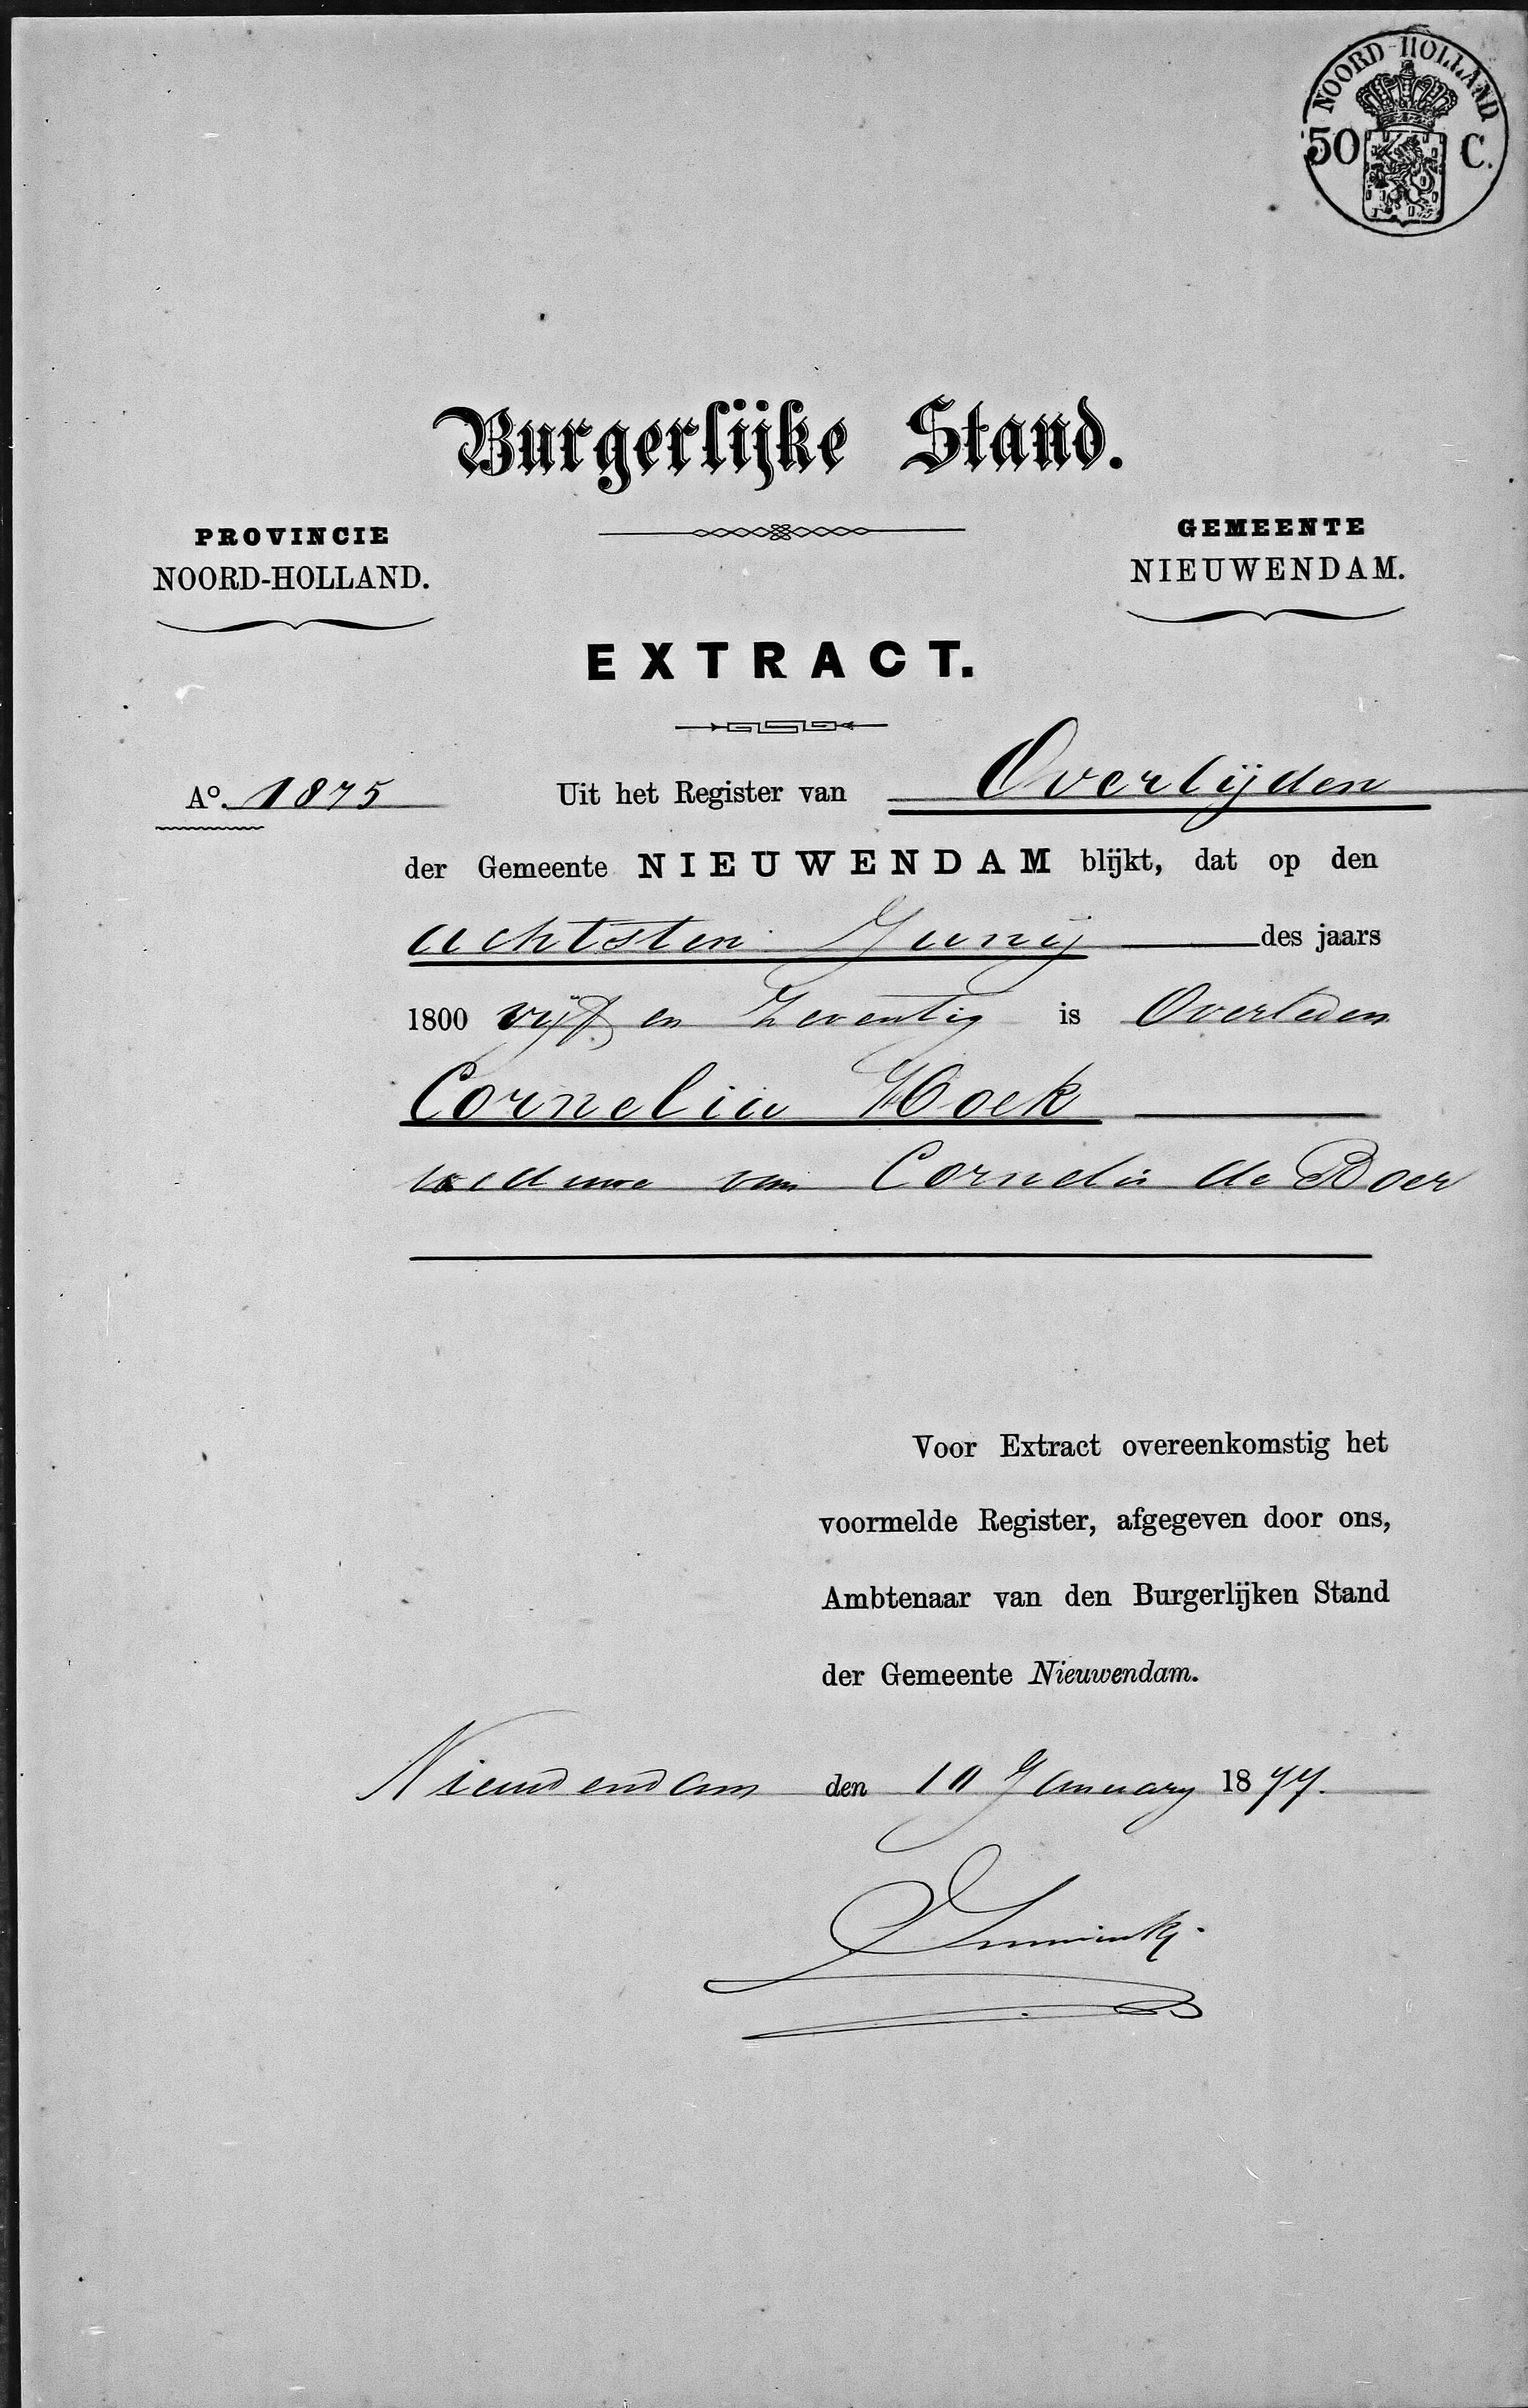 NOORD-HOLLAND
50 C.
Burgerlijke Stand.
PROVINCIE
NOORD-HOLLAND.
GEMEENTE
NIEUWENDAM.
EXTRACT.
Aº. 1875 Uit het Register van Overlijden
der Gemeente NIEUWENDAM blijkt, dat op den
achtsten Junij des jaars
1800 vijf en Zeventig is Overleden
Cornelia Hoek
weduwe van Cornelis de Boer
Voor Extract overeenkomstig het
voormelde Register, afgegeven door ons,
Ambtenaar van den Burgerlijken Stand
der Gemeente Nieuwendam.
Nieuwendam den 10 January 1877.